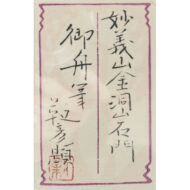 妙義山金洞山石門
御舟筆
靫彦題